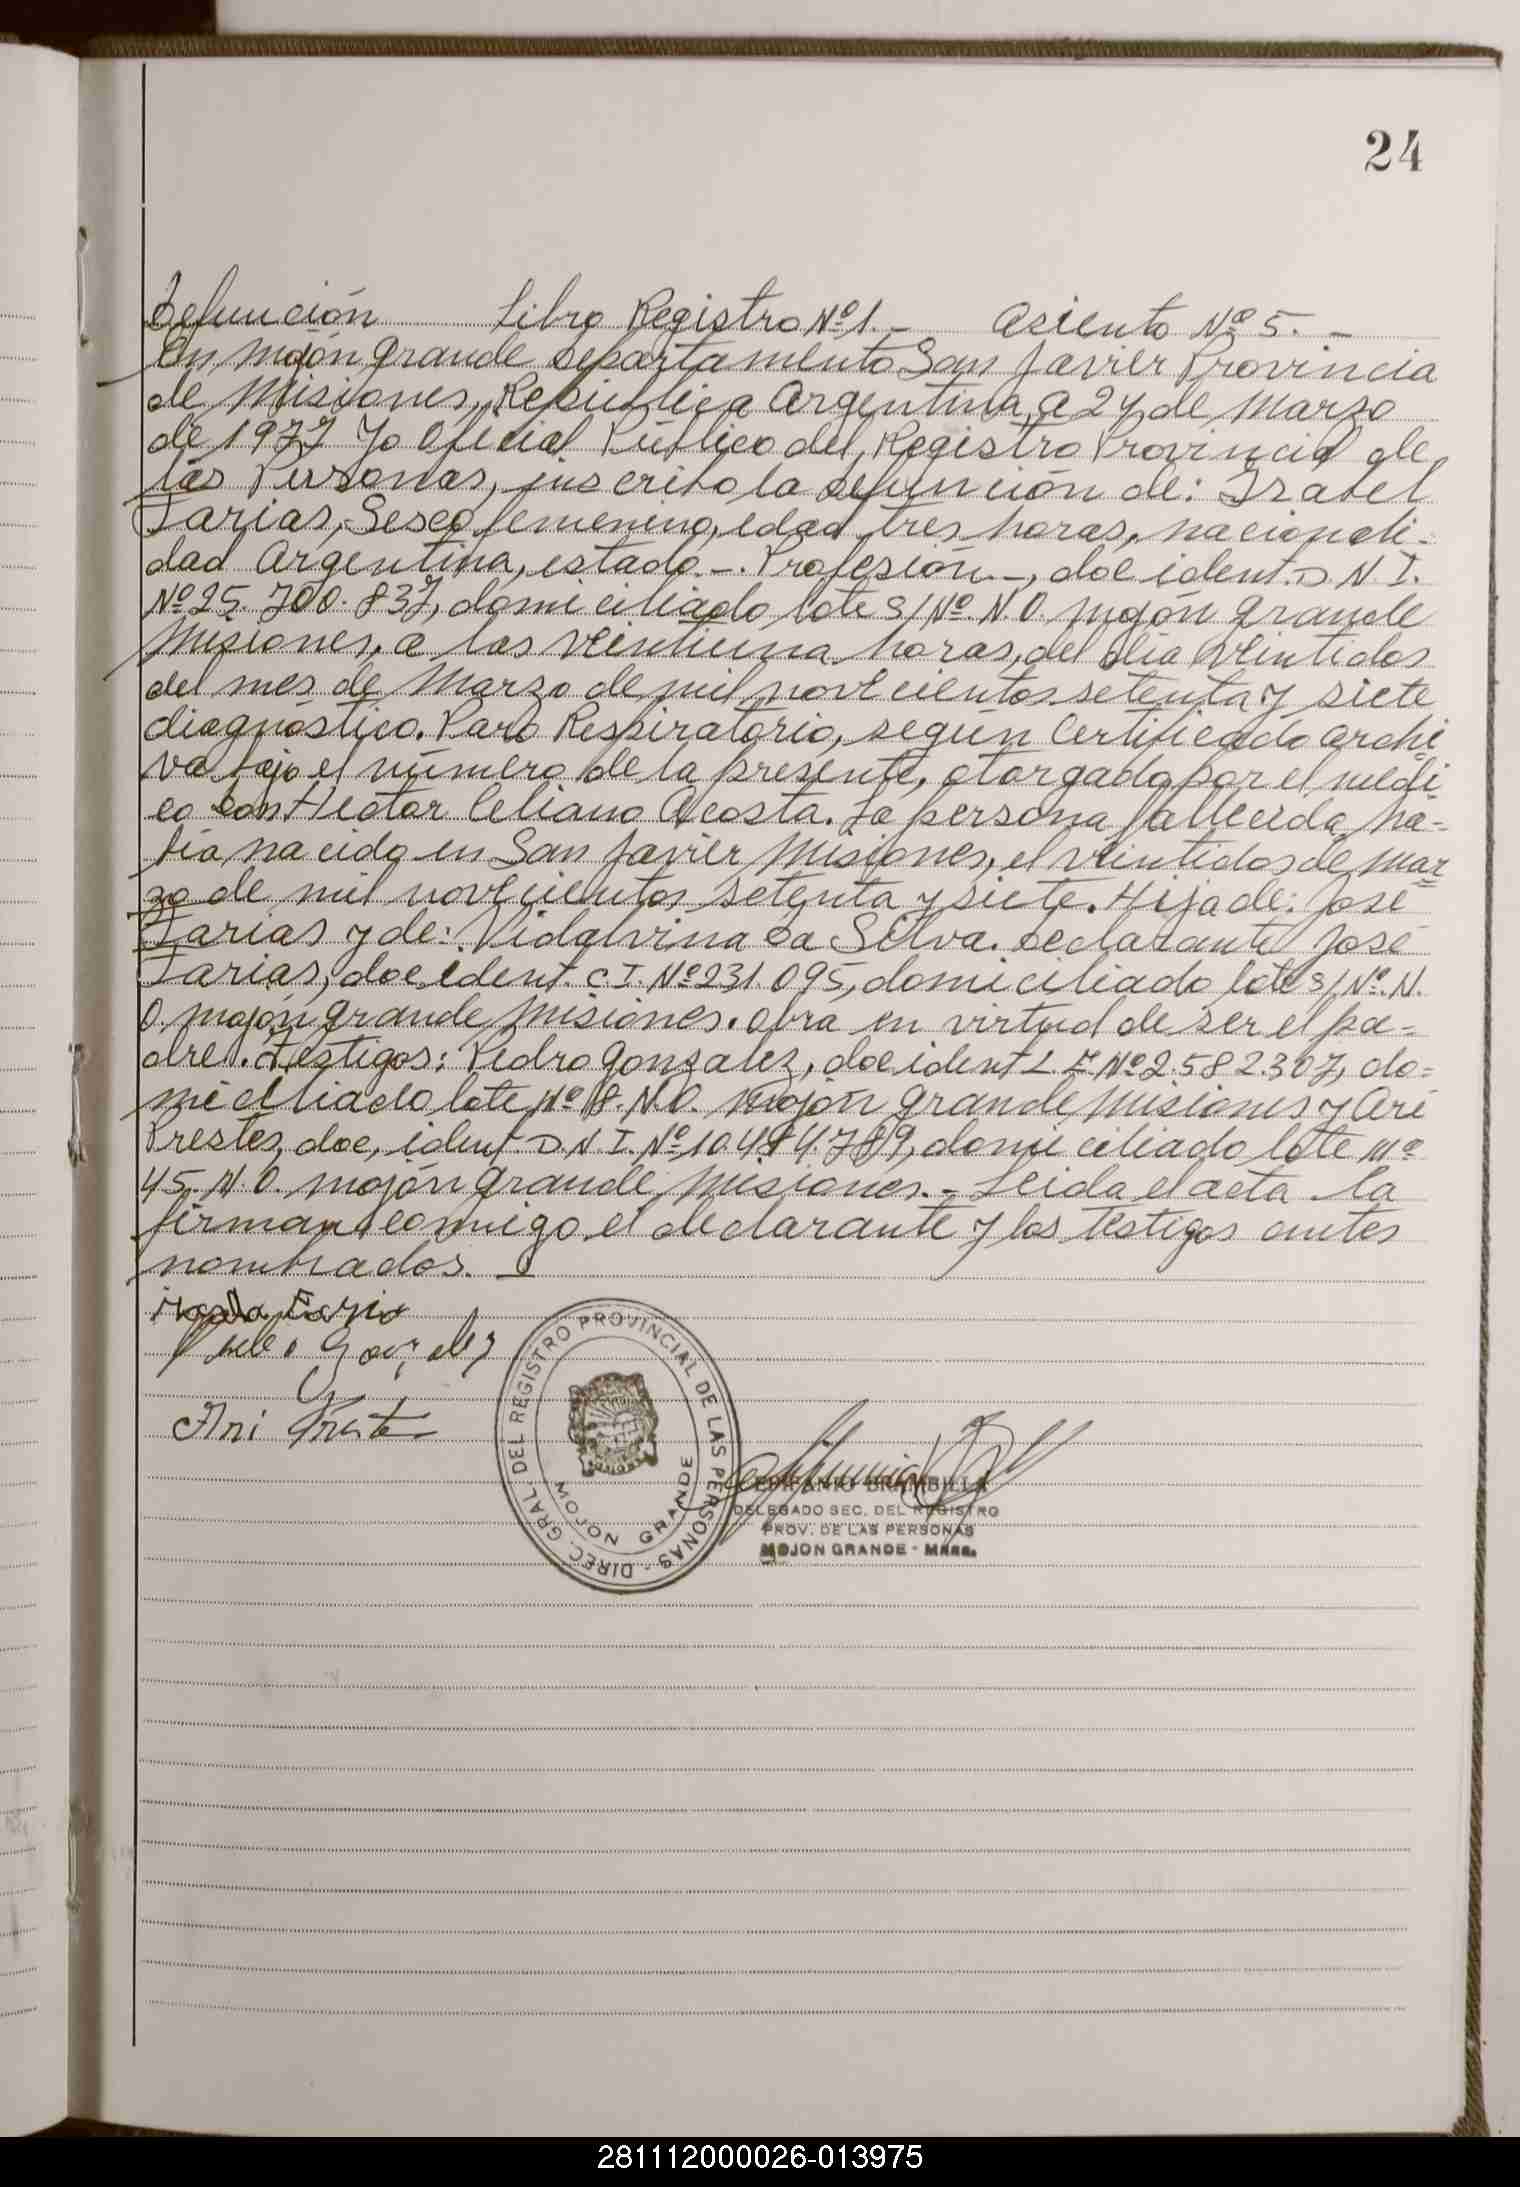 24
Defunción Libro Registro Nº 1.- Asiento Nº 5.-
En Mojón grande Departamento San Javier Provincia
de Misiones, República Argentina, a 24 de Marzo
de 1977 Yo Oficial Público del Registro Provincial de
las Personas, inscribo la defunción de: Izabel
Farias, Sexo femenino, edad tres horas, nacionali-
dad Argentina, estado.-. Profesión.-, doc ident. D.N.I.
Nº 25.700.837, domiciliado lote S/Nº. N.O. Mojón grande
Misiones, a las veintiuna horas, del día veintidos
del mes de Marzo de mil novecientos setenta y siete
diagnóstico. Paro Respiratorio, según Certificado archi
va bajo el número de la presente, otorgado por el médi
co Don Hector Celiano Acosta. La persona fallecida ha-
bía nacido en San Javier Misiones, el veintidos de mar
zo de mil novecientos setenta y siete. Hija de: José
Farias y de: Vidalvina Da Silva. Declarante José
Farias, doc ident. C.I. Nº 231.095, domiciliado lote S/Nº. N.
O. Mojón grande Misiones. Obra en virtud de ser el pa-
dre. Testigos: Pedro Gonzalez, doc ident L.E. Nº 2.582.307, do-
miciliado lote Nº 18. N.O. Mojón grande Misiones y Ari
Prestes, doc, ident. D.N.I. Nº domiciliado lote Nº
45. N.O. Mojón grande Misiones.- Leida el acta la
firman comigo el declarante y los testigos antes
nombrados.-
Faria
Gonzalez
Ari
DIREC. GRAL. DEL REGISTRO PROVINCIAL DE LAS PERSONAS -
MOJON GRANDE
EPIFANIO BRAMBILLA
DELEGADO SEC. DEL REGISTRO
PROV. DE LAS PERSONAS
MOJON GRANDE - Mnes.
281112000026-013975